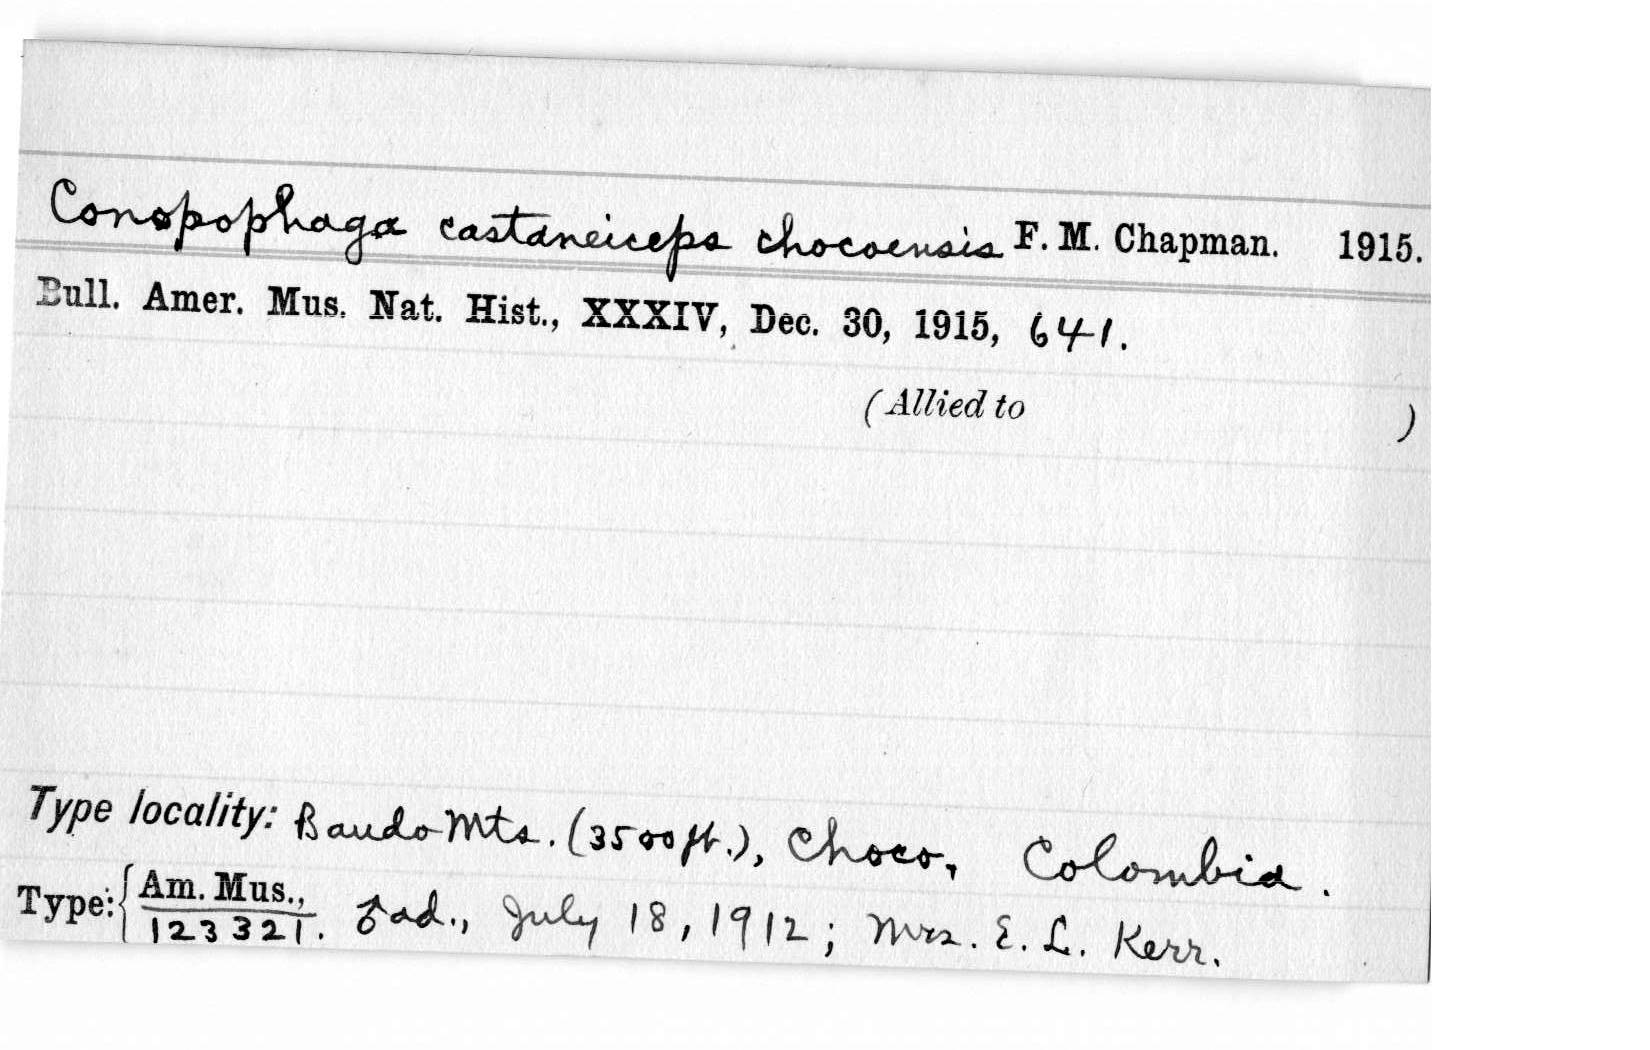 Conopophaga castaneiceps chocoensis F. M. Chapman. 1915.
Bull. Amer. Mus. Nat. Hist., XXXIV, Dec. 30, 1915, 641.
(Allied to )
Type locality: Baudo Mts. (3500 ft.), Choco, Colombia.
Type: { Am. Mus.,
123321. ♂ ad., July 18, 1912; Mrs. E. L. Kerr.